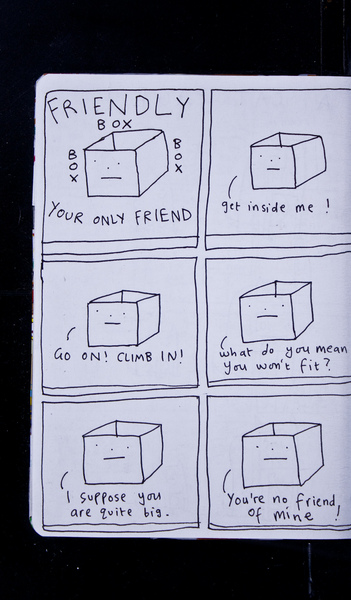 FRIENDLY
BOX
BOX
BOX
YOUR ONLY FRIEND
get inside me !
GO ON! CLIMB IN!
what do you mean
you won't fit?
I suppose you
are quite big.
You're no friend
of mine !